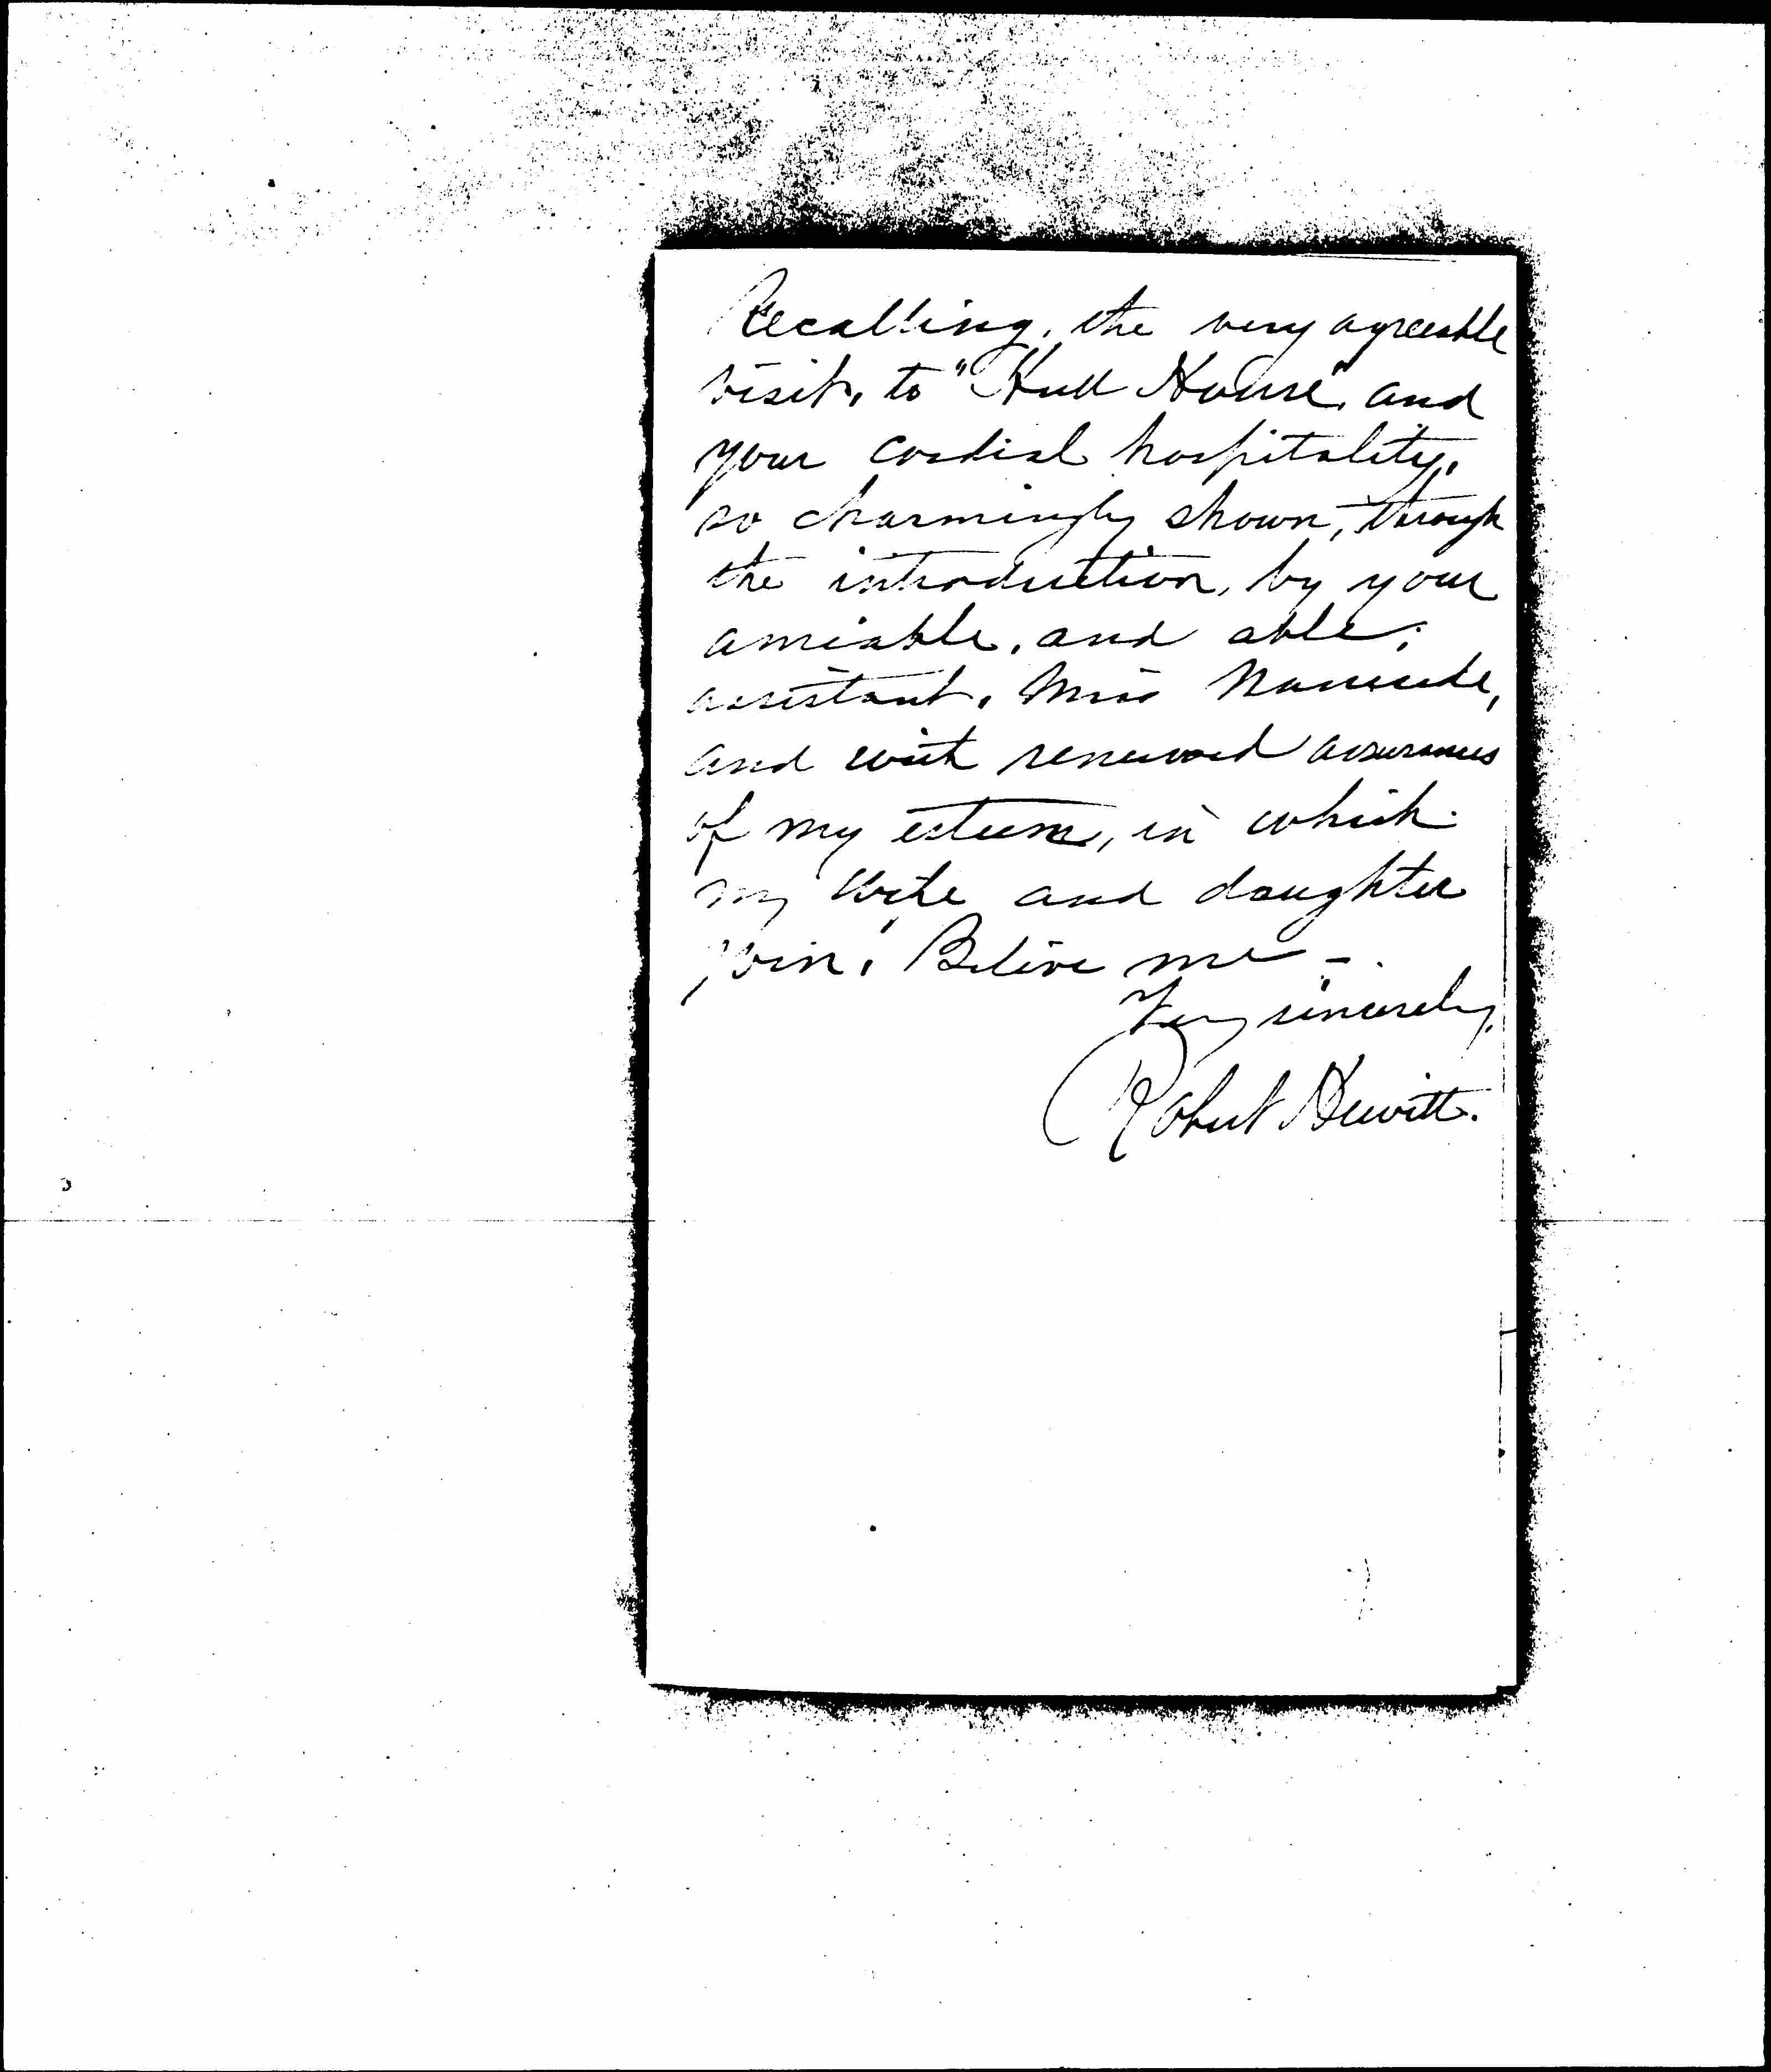 Recalling, the very agreeable
visit, to "Hull House", and
your cordial hospitality,
so charmingly shown, through
the introduction, by your
amiable, and able,
assistant, Miss
and with renewed assurances
of my esteem, in which
my wife and daughter
join, Belive me -
Very sincerely,
Robert Hewitt.